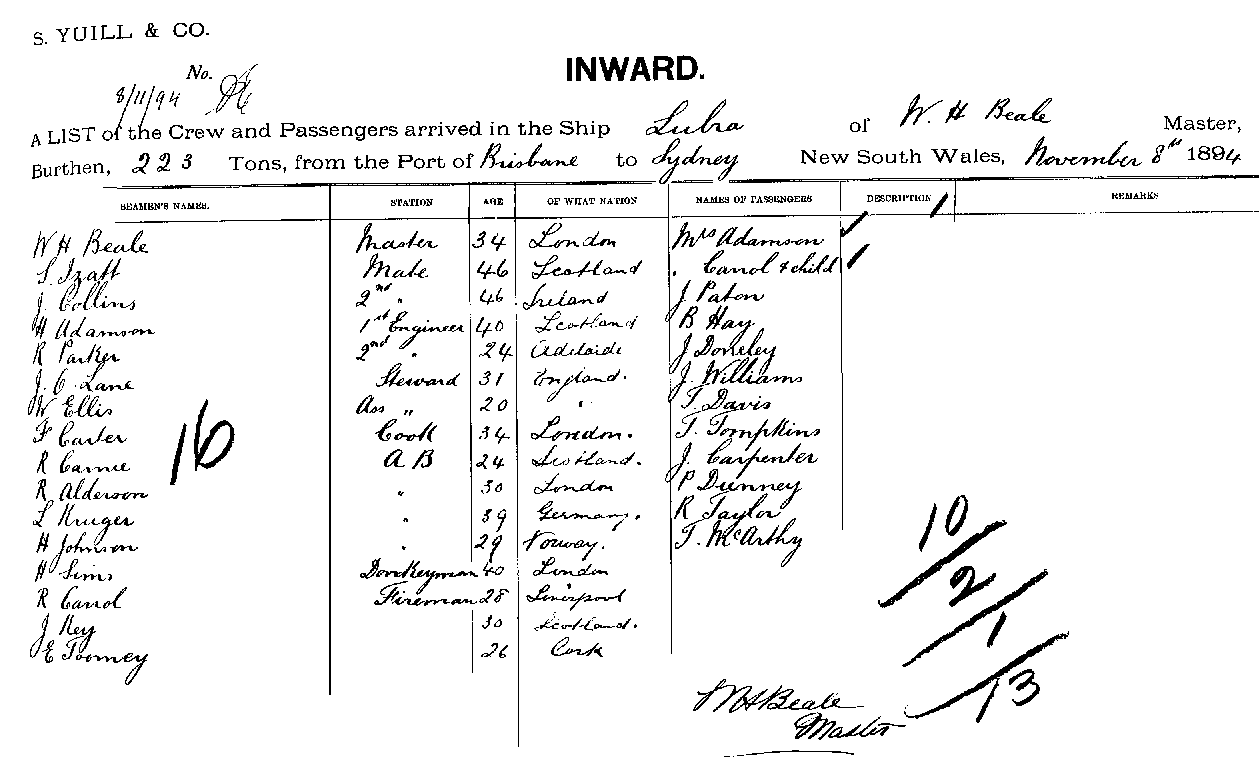 S. YUILL & CO.
No.
INWARD.
8/11/94
A LIST of the Crew and Passengers arrived in the Ship Lubra of W. H Beale Master,
Burthen, 223 Tons, from the Port of Brisbane to Sydney New South Wales, November 8th 1894
SEAMEN'S NAMES. STATION AGE OF WHAT NATION NAMES OF PASSENGERS DESCRIPTION REMARKS
W H Beale Master 34 London Mrs Adamson
S. Izatt Mate 46 Scotland " Carrol & child
J. Collins 2nd " 46 Ireland J Paton
H Adamson 1st Engineer 40 Scotland B Hay
R Parker 2nd " 24 Adelaide J Doneley
J. C. Lane Steward 31 England. J. Williams
W Ellis Ass " 20 " T Davis
F Carter Cook 34 London. T. Tompkins
R Carnie A B 24 Scotland. J. Carpenter
R Alderson " 30 London P Dunney
L Kruger " 39 Germany. R Taylor
H Johnson " 29 Norway. T. McArthy
H Sims Donkeyman 40 London
R Carrol Fireman 28 Liverpool
J Key 30 Scotland.
E Toomey 26 Cork
16
10
2
1
13
W H Beale
Master